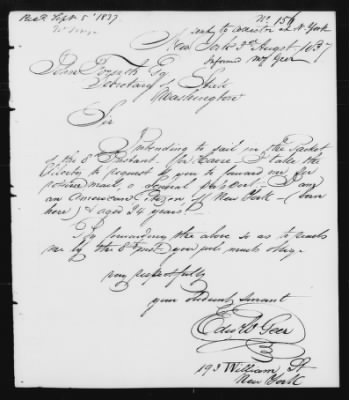 Recd Sept 5 1837
No 156
New York 3rd Augst 1837
John Forsyth Esq
Secretary of State
Washington
Sir
Intending to sail in the Packet
of the 8th Instant for Havre I take the
liberty to request of you to forward me per
return mail, a general Passport I am
an American Citizen of New York (born
here) & aged 24 years
By forwarding the above so as to reach
me by the 8th inst you will much oblige
very respectfully
your obedient servant
Edw W Geer
193 William St
New York